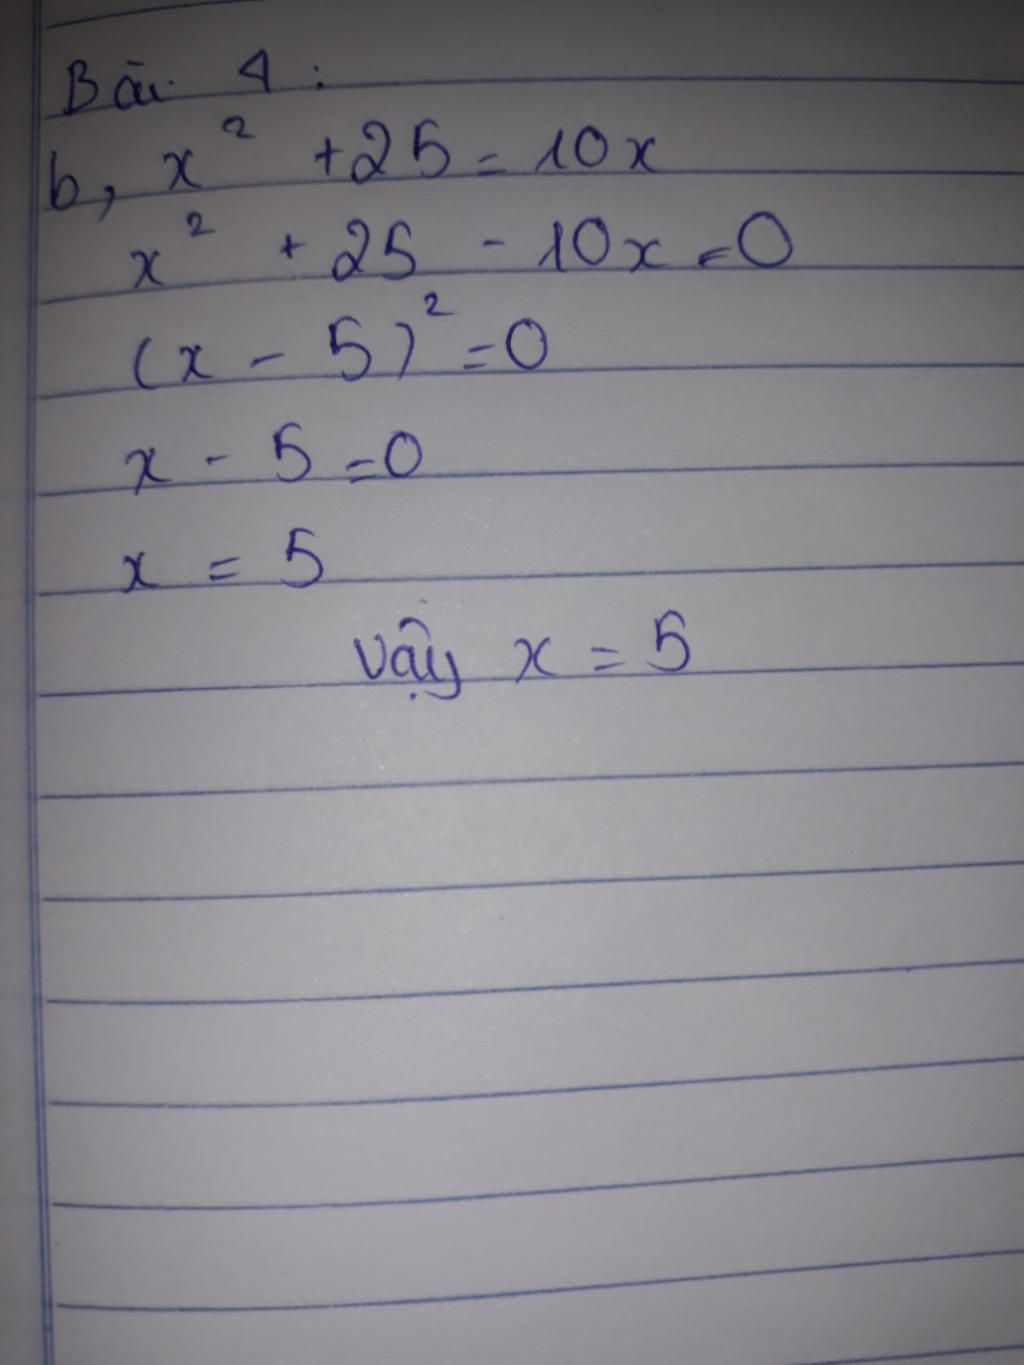 Bài 4 :
b, x² + 25 = 10x
x² + 25 - 10x = 0
(x - 5)² = 0
x - 5 = 0
x = 5
Vậy x = 5